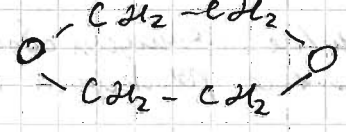 CH2 - CH2
O O
CH2 - CH2